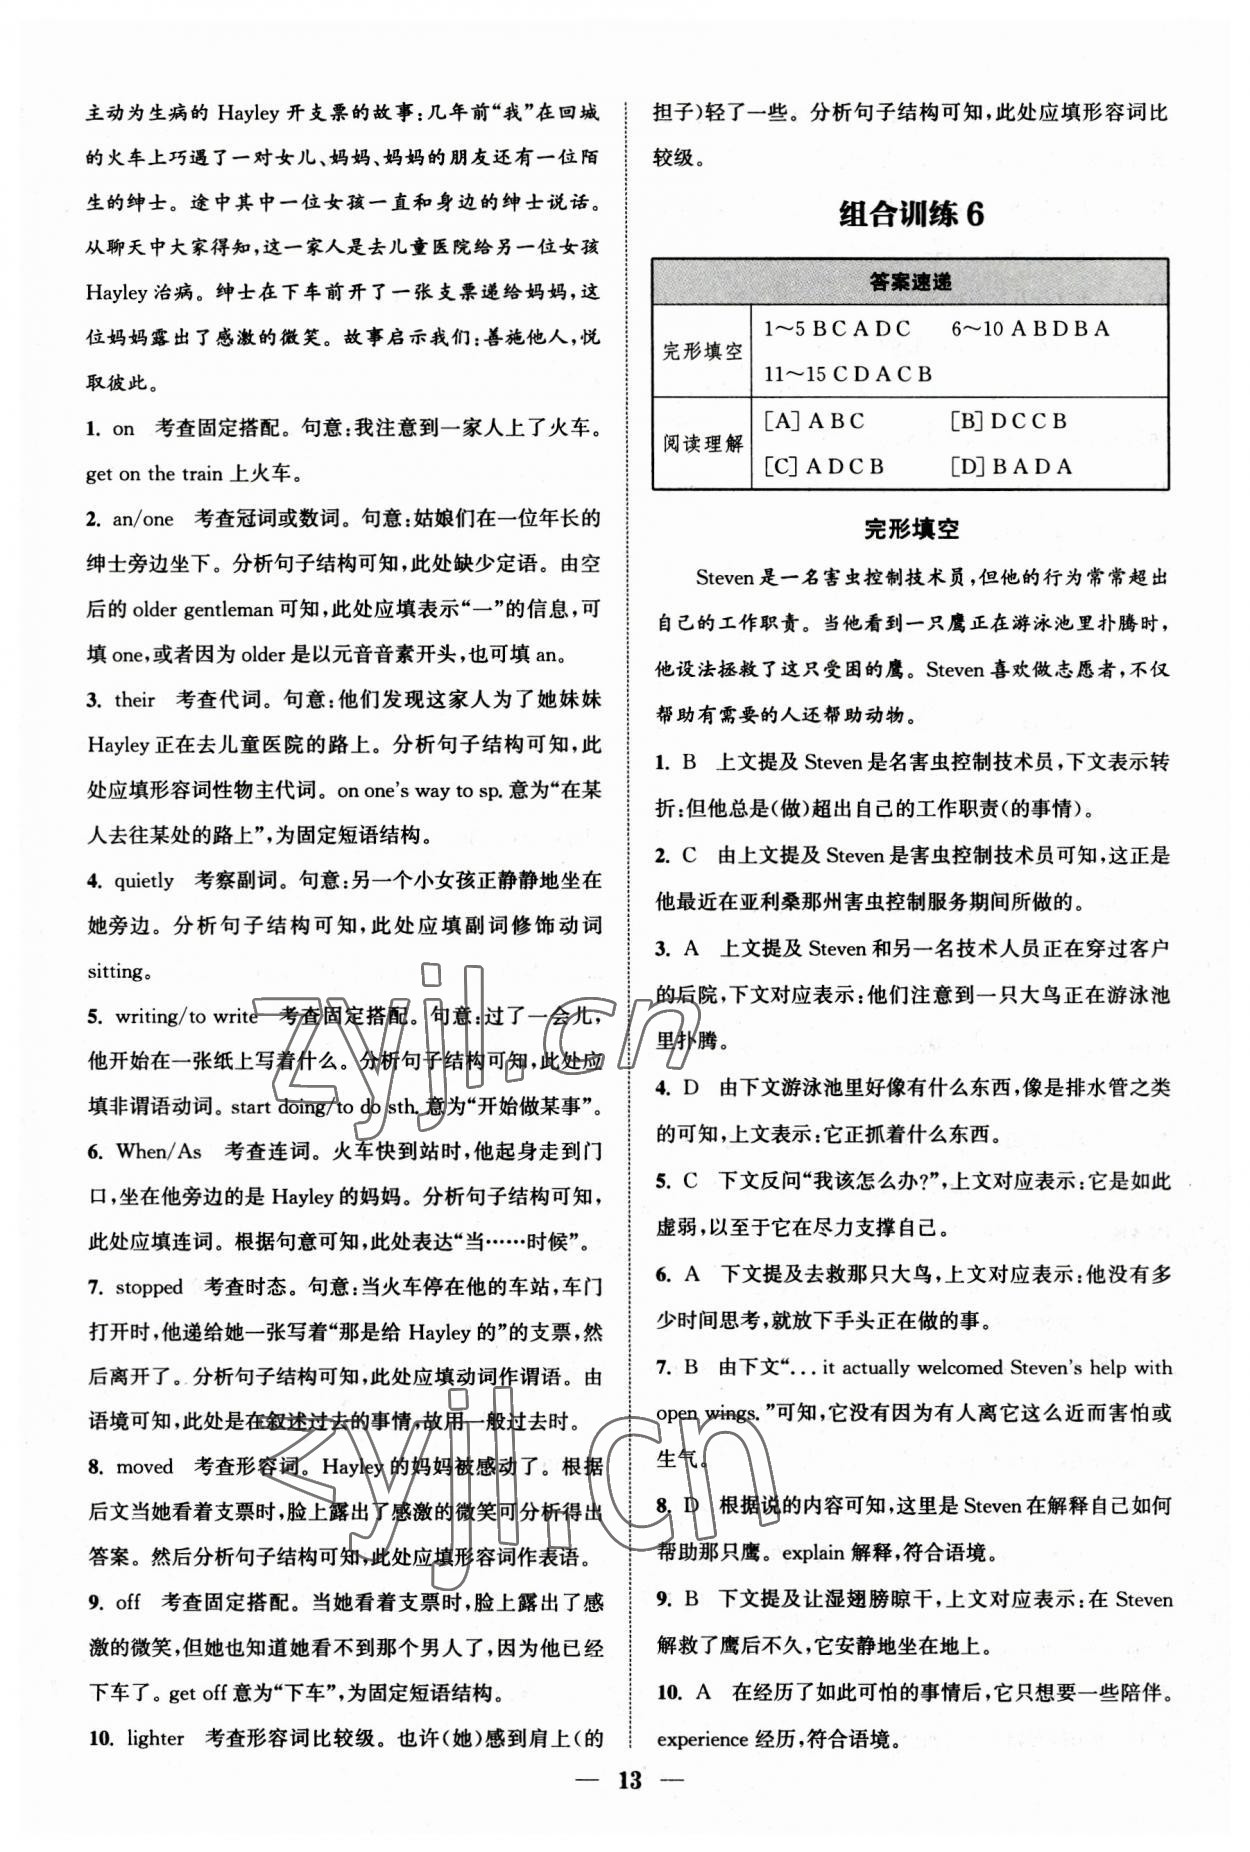 主动为生病的 Hayley 开支票的故事:几年前“我”在回城
的火车上巧遇了一对女儿、妈妈、妈妈的朋友还有一位陌
生的绅士。途中其中一位女孩一直和身边的绅士说话。
从聊天中大家得知,这一家人是去儿童医院给另一位女孩
Hayley 治病。绅士在下车前开了一张支票递给妈妈,这
位妈妈露出了感激的微笑。故事启示我们:善施他人,悦
取彼此。
1. on 考查固定搭配。句意:我注意到一家人上了火车。
get on the train 上火车。
2. an/one 考查冠词或数词。句意:姑娘们在一位年长的
绅士旁边坐下。分析句子结构可知,此处缺少定语。由空
后的 older gentleman 可知,此处应填表示“一”的信息,可
填 one,或者因为 older 是以元音音素开头,也可填 an。
3. their 考查代词。句意:他们发现这家人为了她妹妹
Hayley 正在去儿童医院的路上。分析句子结构可知,此
处应填形容词性物主代词。on one's way to sp. 意为“在某
人去往某处的路上”,为固定短语结构。
4. quietly 考察副词。句意:另一个小女孩正静静地坐在
她旁边。分析句子结构可知,此处应填副词修饰动词
sitting。
5. writing/to write 考查固定搭配。句意:过了一会儿,
他开始在一张纸上写着什么。分析句子结构可知,此处应
填非谓语动词。start doing/to do sth. 意为“开始做某事”。
6. When/As 考查连词。火车快到站时,他起身走到门
口,坐在他旁边的是 Hayley 的妈妈。分析句子结构可知,
此处应填连词。根据句意可知,此处表达“当……时候”。
7. stopped 考查时态。句意:当火车停在他的车站,车门
打开时,他递给她一张写着“那是给 Hayley 的”的支票,然
后离开了。分析句子结构可知,此处应填动词作谓语。由
语境可知,此处是在叙述过去的事情,故用一般过去时。
8. moved 考查形容词。Hayley 的妈妈被感动了。根据
后文当她看着支票时,脸上露出了感激的微笑可分析得出
答案。然后分析句子结构可知,此处应填形容词作表语。
9. off 考查固定搭配。当她看着支票时,脸上露出了感
激的微笑,但她也知道她看不到那个男人了,因为他已经
下车了。get off 意为“下车”,为固定短语结构。
10. lighter 考查形容词比较级。也许(她)感到肩上(的
担子)轻了一些。分析句子结构可知,此处应填形容词比
较级。
组合训练 6
答案速递
完形填空
1～5 B C A D C 6～10 A B D B A
11～15 C D A C B
阅读理解
[A] A B C [B] D C C B
[C] A D C B [D] B A D A
完形填空
Steven 是一名害虫控制技术员,但他的行为常常超出
自己的工作职责。当他看到一只鹰正在游泳池里扑腾时,
他设法拯救了这只受困的鹰。Steven 喜欢做志愿者,不仅
帮助有需要的人还帮助动物。
1. B 上文提及 Steven 是名害虫控制技术员,下文表示转
折:但他总是(做)超出自己的工作职责(的事情)。
2. C 由上文提及 Steven 是害虫控制技术员可知,这正是
他最近在亚利桑那州害虫控制服务期间所做的。
3. A 上文提及 Steven 和另一名技术人员正在穿过客户
的后院,下文对应表示:他们注意到一只大鸟正在游泳池
里扑腾。
4. D 由下文游泳池里好像有什么东西,像是排水管之类
的可知,上文表示:它正抓着什么东西。
5. C 下文反问“我该怎么办?”,上文对应表示:它是如此
虚弱,以至于它在尽力支撑自己。
6. A 下文提及去救那只大鸟,上文对应表示:他没有多
少时间思考,就放下手头正在做的事。
7. B 由下文“... it actually welcomed Steven's help with
open wings.”可知,它没有因为有人离它这么近而害怕或
生气。
8. D 根据说的内容可知,这里是 Steven 在解释自己如何
帮助那只鹰。explain 解释,符合语境。
9. B 下文提及让湿翅膀晾干,上文对应表示:在 Steven
解救了鹰后不久,它安静地坐在地上。
10. A 在经历了如此可怕的事情后,它只想要一些陪伴。
experience 经历,符合语境。
— 13 —
zyjl.cn
zyjl.cn